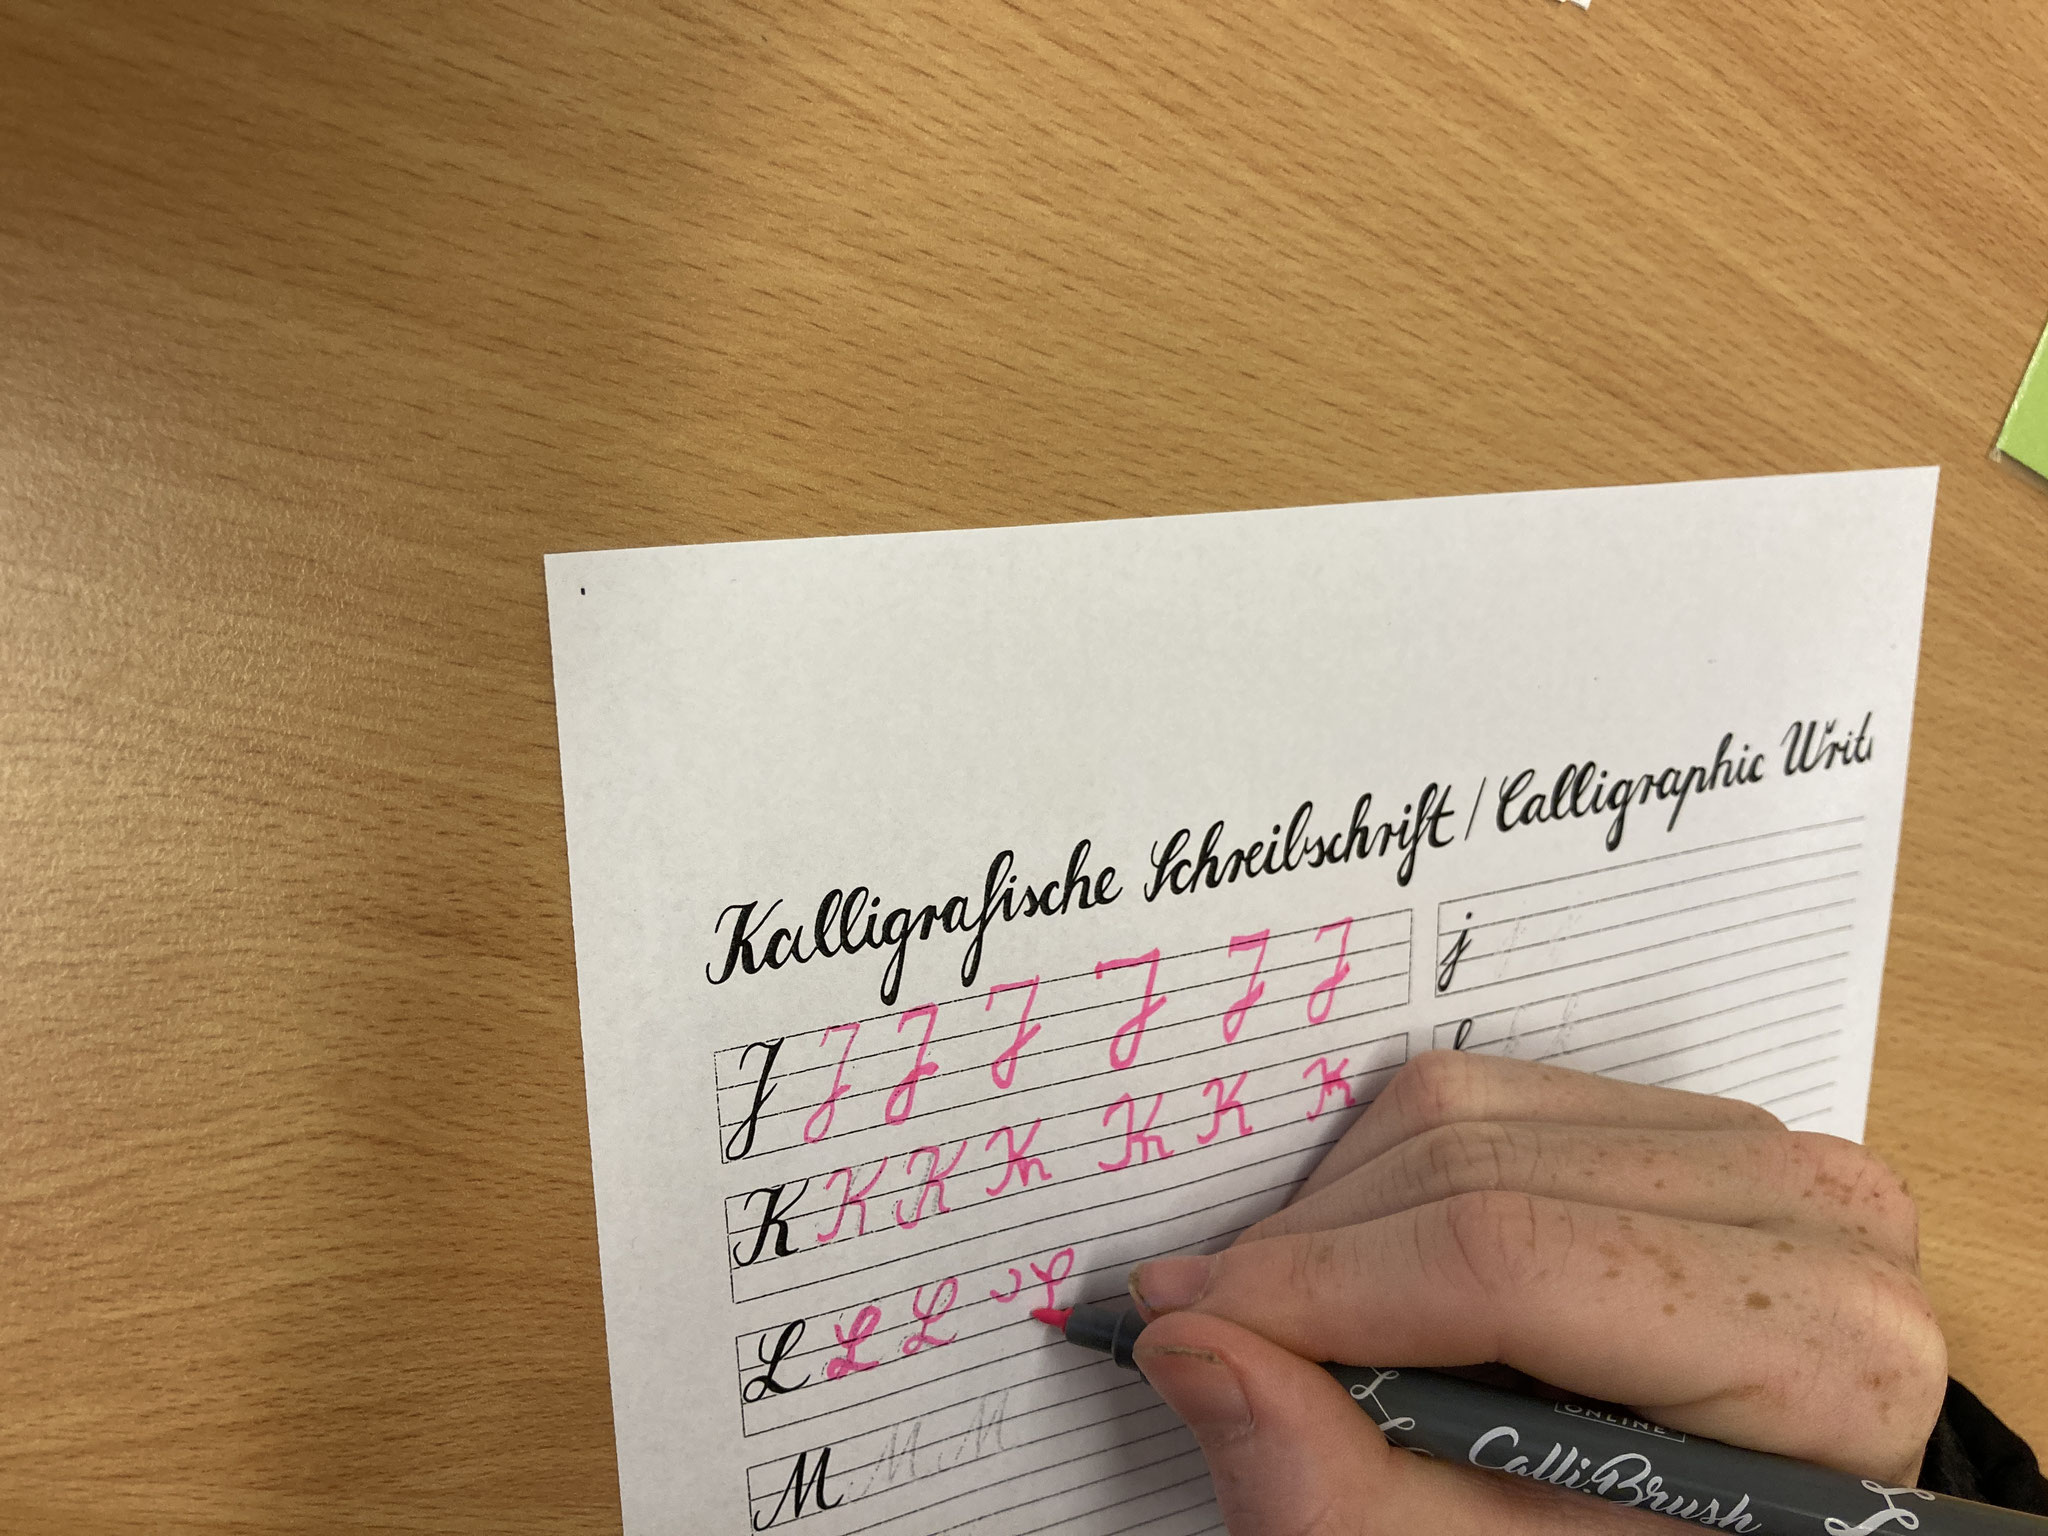 Kalligrafische Schreibschrift / Calligraphic Writi
J J J J J J J
j
K K K K K K K
k
L L L L
M M M
ONLINE
Calli.Brush